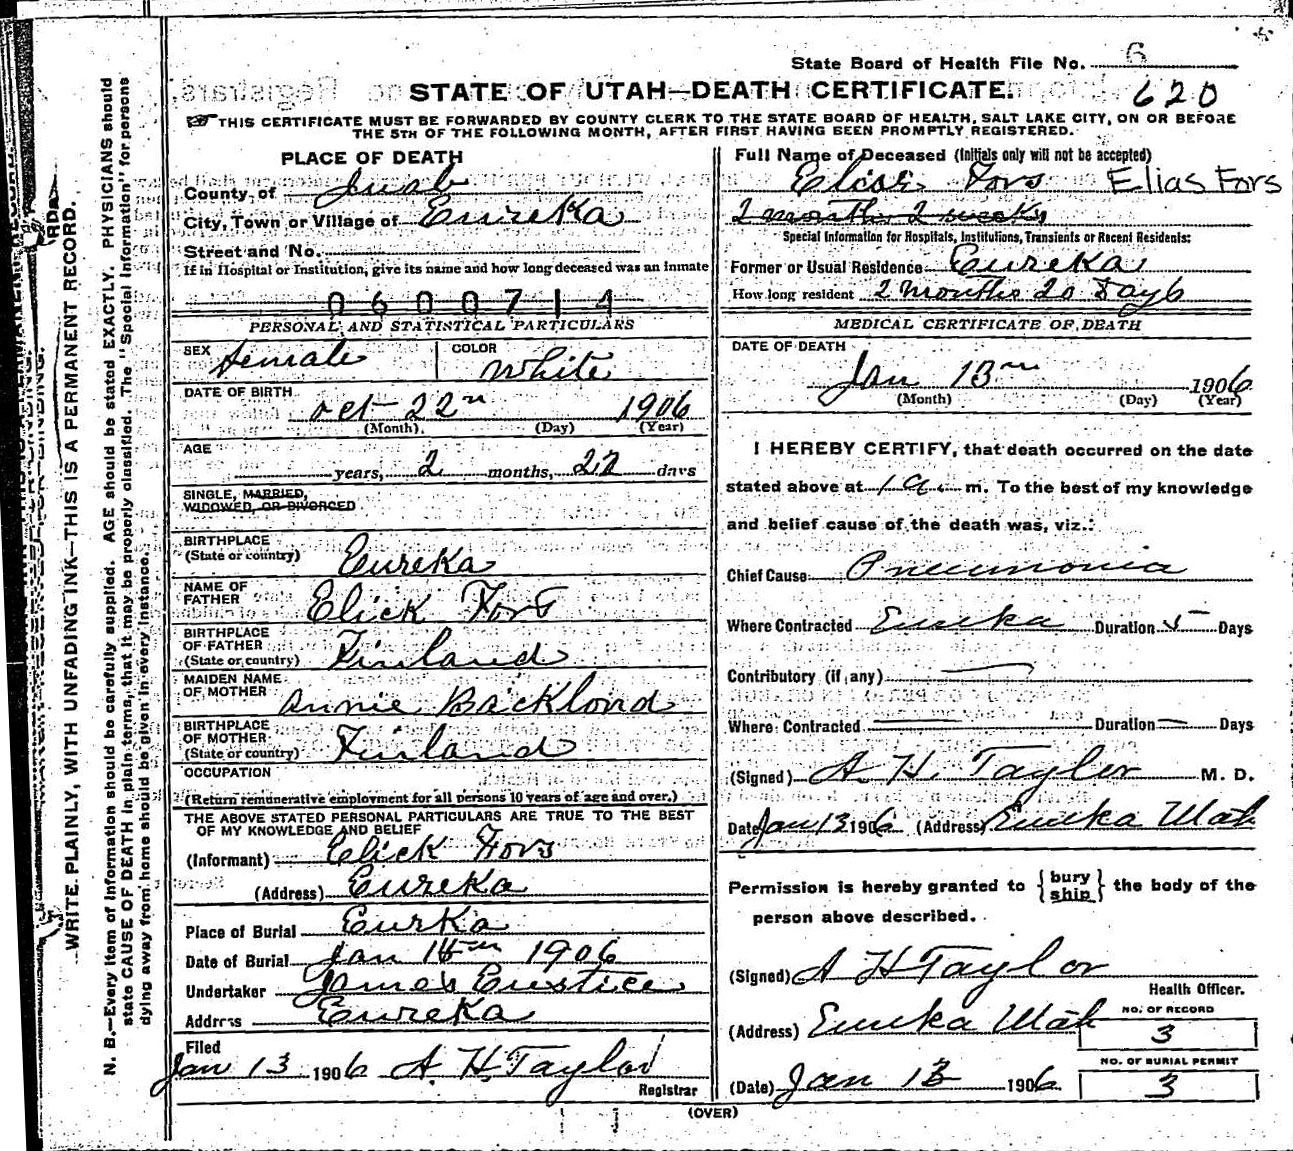 State Board of Health File No. 6
STATE OF UTAH—DEATH CERTIFICATE.
620
THIS CERTIFICATE MUST BE FORWARDED BY COUNTY CLERK TO THE STATE BOARD OF HEALTH, SALT LAKE CITY, ON OR BEFORE
THE 5TH OF THE FOLLOWING MONTH, AFTER FIRST HAVING BEEN PROMPTLY REGISTERED.
PLACE OF DEATH
County of Juab
City, Town or Village of Eureka
Street and No.
If in Hospital or Institution, give its name and how long deceased was an inmate
0600714
PERSONAL AND STATISTICAL PARTICULARS
SEX female COLOR White
DATE OF BIRTH
Oct 22 1906
(Month) (Day) (Year)
AGE
years, 2 months, 22 days
SINGLE, MARRIED,
WIDOWED, OR DIVORCED
BIRTHPLACE
(State or country) Eureka
NAME OF
FATHER Elick Fors
BIRTHPLACE
OF FATHER
(State or country) Finland
MAIDEN NAME
OF MOTHER Annie Backlond
BIRTHPLACE
OF MOTHER
(State or country) Finland
OCCUPATION
(Return remunerative employment for all persons 10 years of age and over.)
THE ABOVE STATED PERSONAL PARTICULARS ARE TRUE TO THE BEST
OF MY KNOWLEDGE AND BELIEF
(Informant) Elick Fors
(Address) Eureka
Place of Burial Eurka
Date of Burial Jan 1906
Undertaker James Eustice
Address Eureka
Filed
Jan 13 1906 A. H. Taylor
Registrar
Full Name of Deceased (Initials only will not be accepted)
Elias Fors Elias Fors
2 months 2 weeks
Special Information for Hospitals, Institutions, Transients or Recent Residents:
Former or Usual Residence Eureka
How long resident 2 months 20 Days
MEDICAL CERTIFICATE OF DEATH
DATE OF DEATH
Jan 13 1906
(Month) (Day) (Year)
I HEREBY CERTIFY, that death occurred on the date
stated above at 1 a. m. To the best of my knowledge
and belief cause of the death was, viz.:
Chief Cause: Pneumonia
Where Contracted Eureka Duration 5 Days
Contributory (if any)
Where Contracted Duration — Days
(Signed) A. H. Taylor M. D.
Date Jan 13 1906 (Address) Eureka Utah
Permission is hereby granted to {bury ship} the body of the
person above described.
(Signed) A H Taylor
Health Officer.
(Address) Eureka Utah
NO. OF RECORD
3
NO. OF BURIAL PERMIT
3
(Date) Jan 13 1906
(OVER)
WRITE PLAINLY, WITH UNFADING INK—THIS IS A PERMANENT RECORD.
N. B.—Every item of information should be carefully supplied. AGE should be stated EXACTLY. PHYSICIANS should
state CAUSE OF DEATH in plain terms, that it may be properly classified. The "Special Information" for persons
dying away from home should be given in every instance.